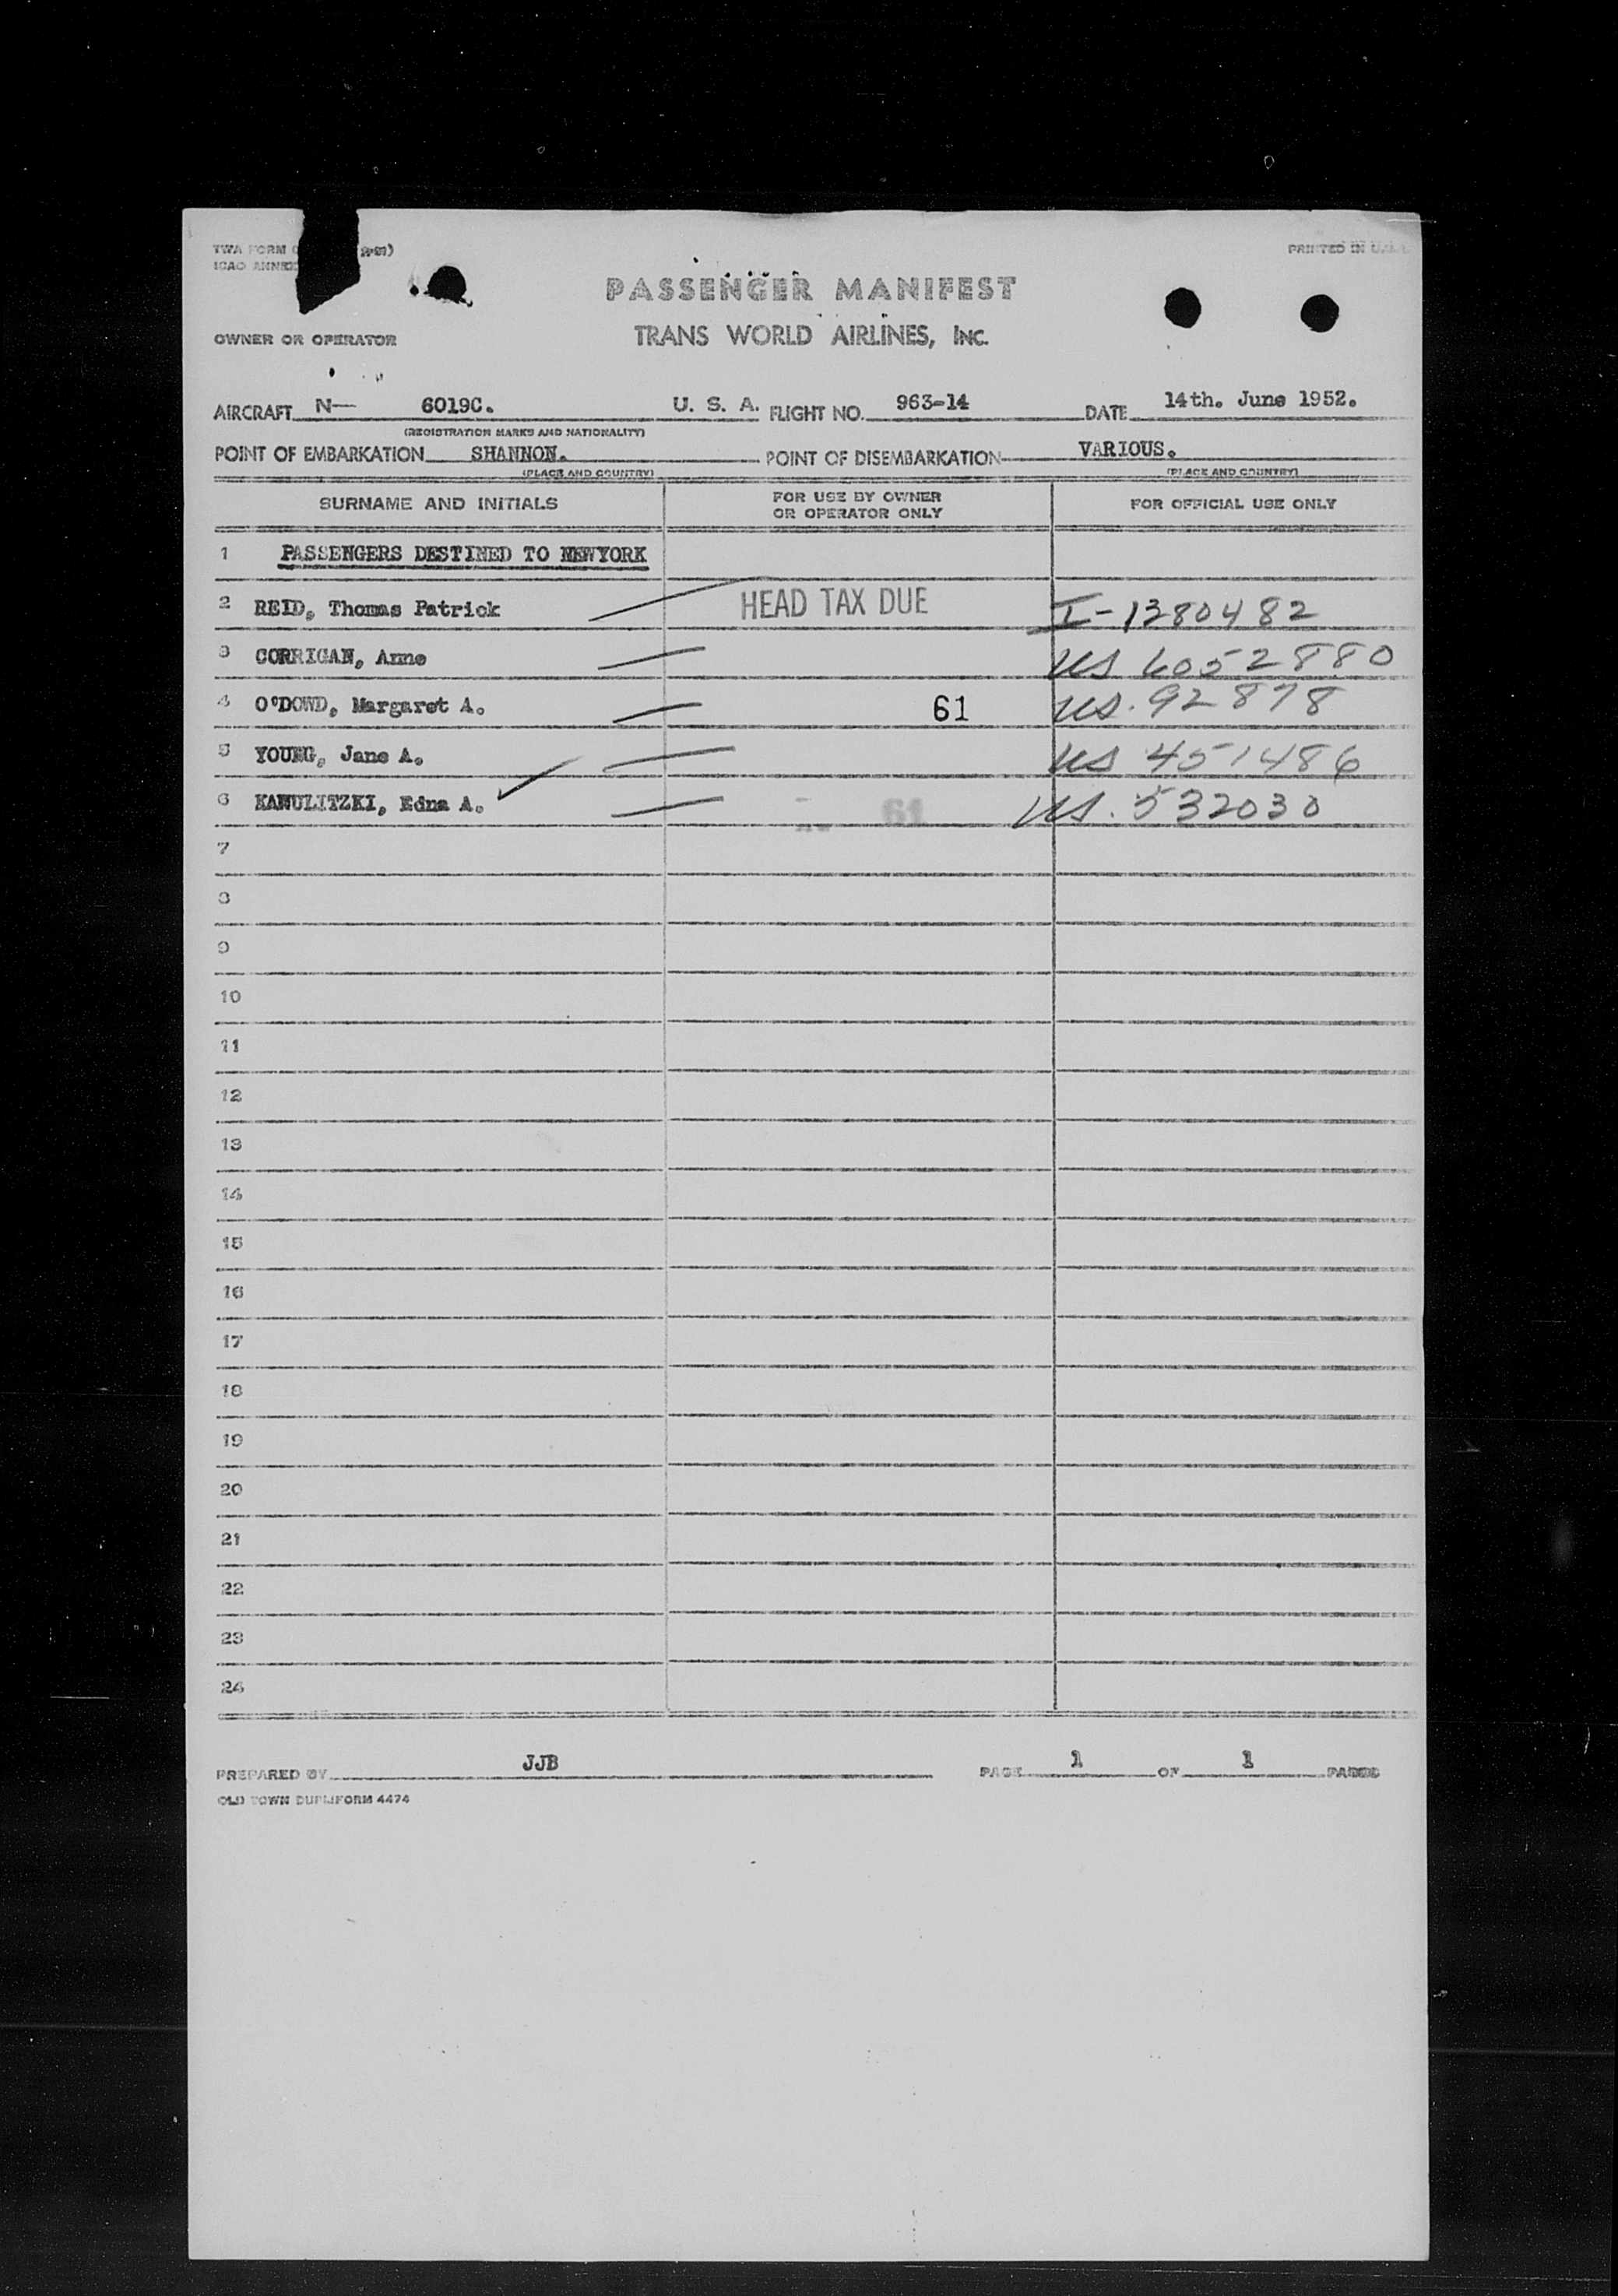 TWA FORM
ICAO ANNEX
PRINTED IN U.S.A.
PASSENGER MANIFEST
OWNER OR OPERATOR
TRANS WORLD AIRLINES, INC.
AIRCRAFT N— 6019C. U. S. A. FLIGHT NO. 963-14 DATE 14th. June 1952.
(REGISTRATION MARKS AND NATIONALITY)
POINT OF EMBARKATION SHANNON. POINT OF DISEMBARKATION VARIOUS.
(PLACE AND COUNTRY) (PLACE AND COUNTRY)
SURNAME AND INITIALS FOR USE BY OWNER OR OPERATOR ONLY FOR OFFICIAL USE ONLY
1 PASSENGERS DESTINED TO NEWYORK
2 REID, Thomas Patrick HEAD TAX DUE I-1380482
3 CORRIGAN, Anne US 6052880
4 O'DOWD, Margaret A. 61 US. 92878
5 YOUNG, Jane A. US 451486
6 KANULITZKI, Edna A. 61 US. 532030
7
8
9
10
11
12
13
14
15
16
17
18
19
20
21
22
23
24
PREPARED BY JJB PAGE 1 OF 1 PAGES
OLD TOWN DUPLIFORM 4474